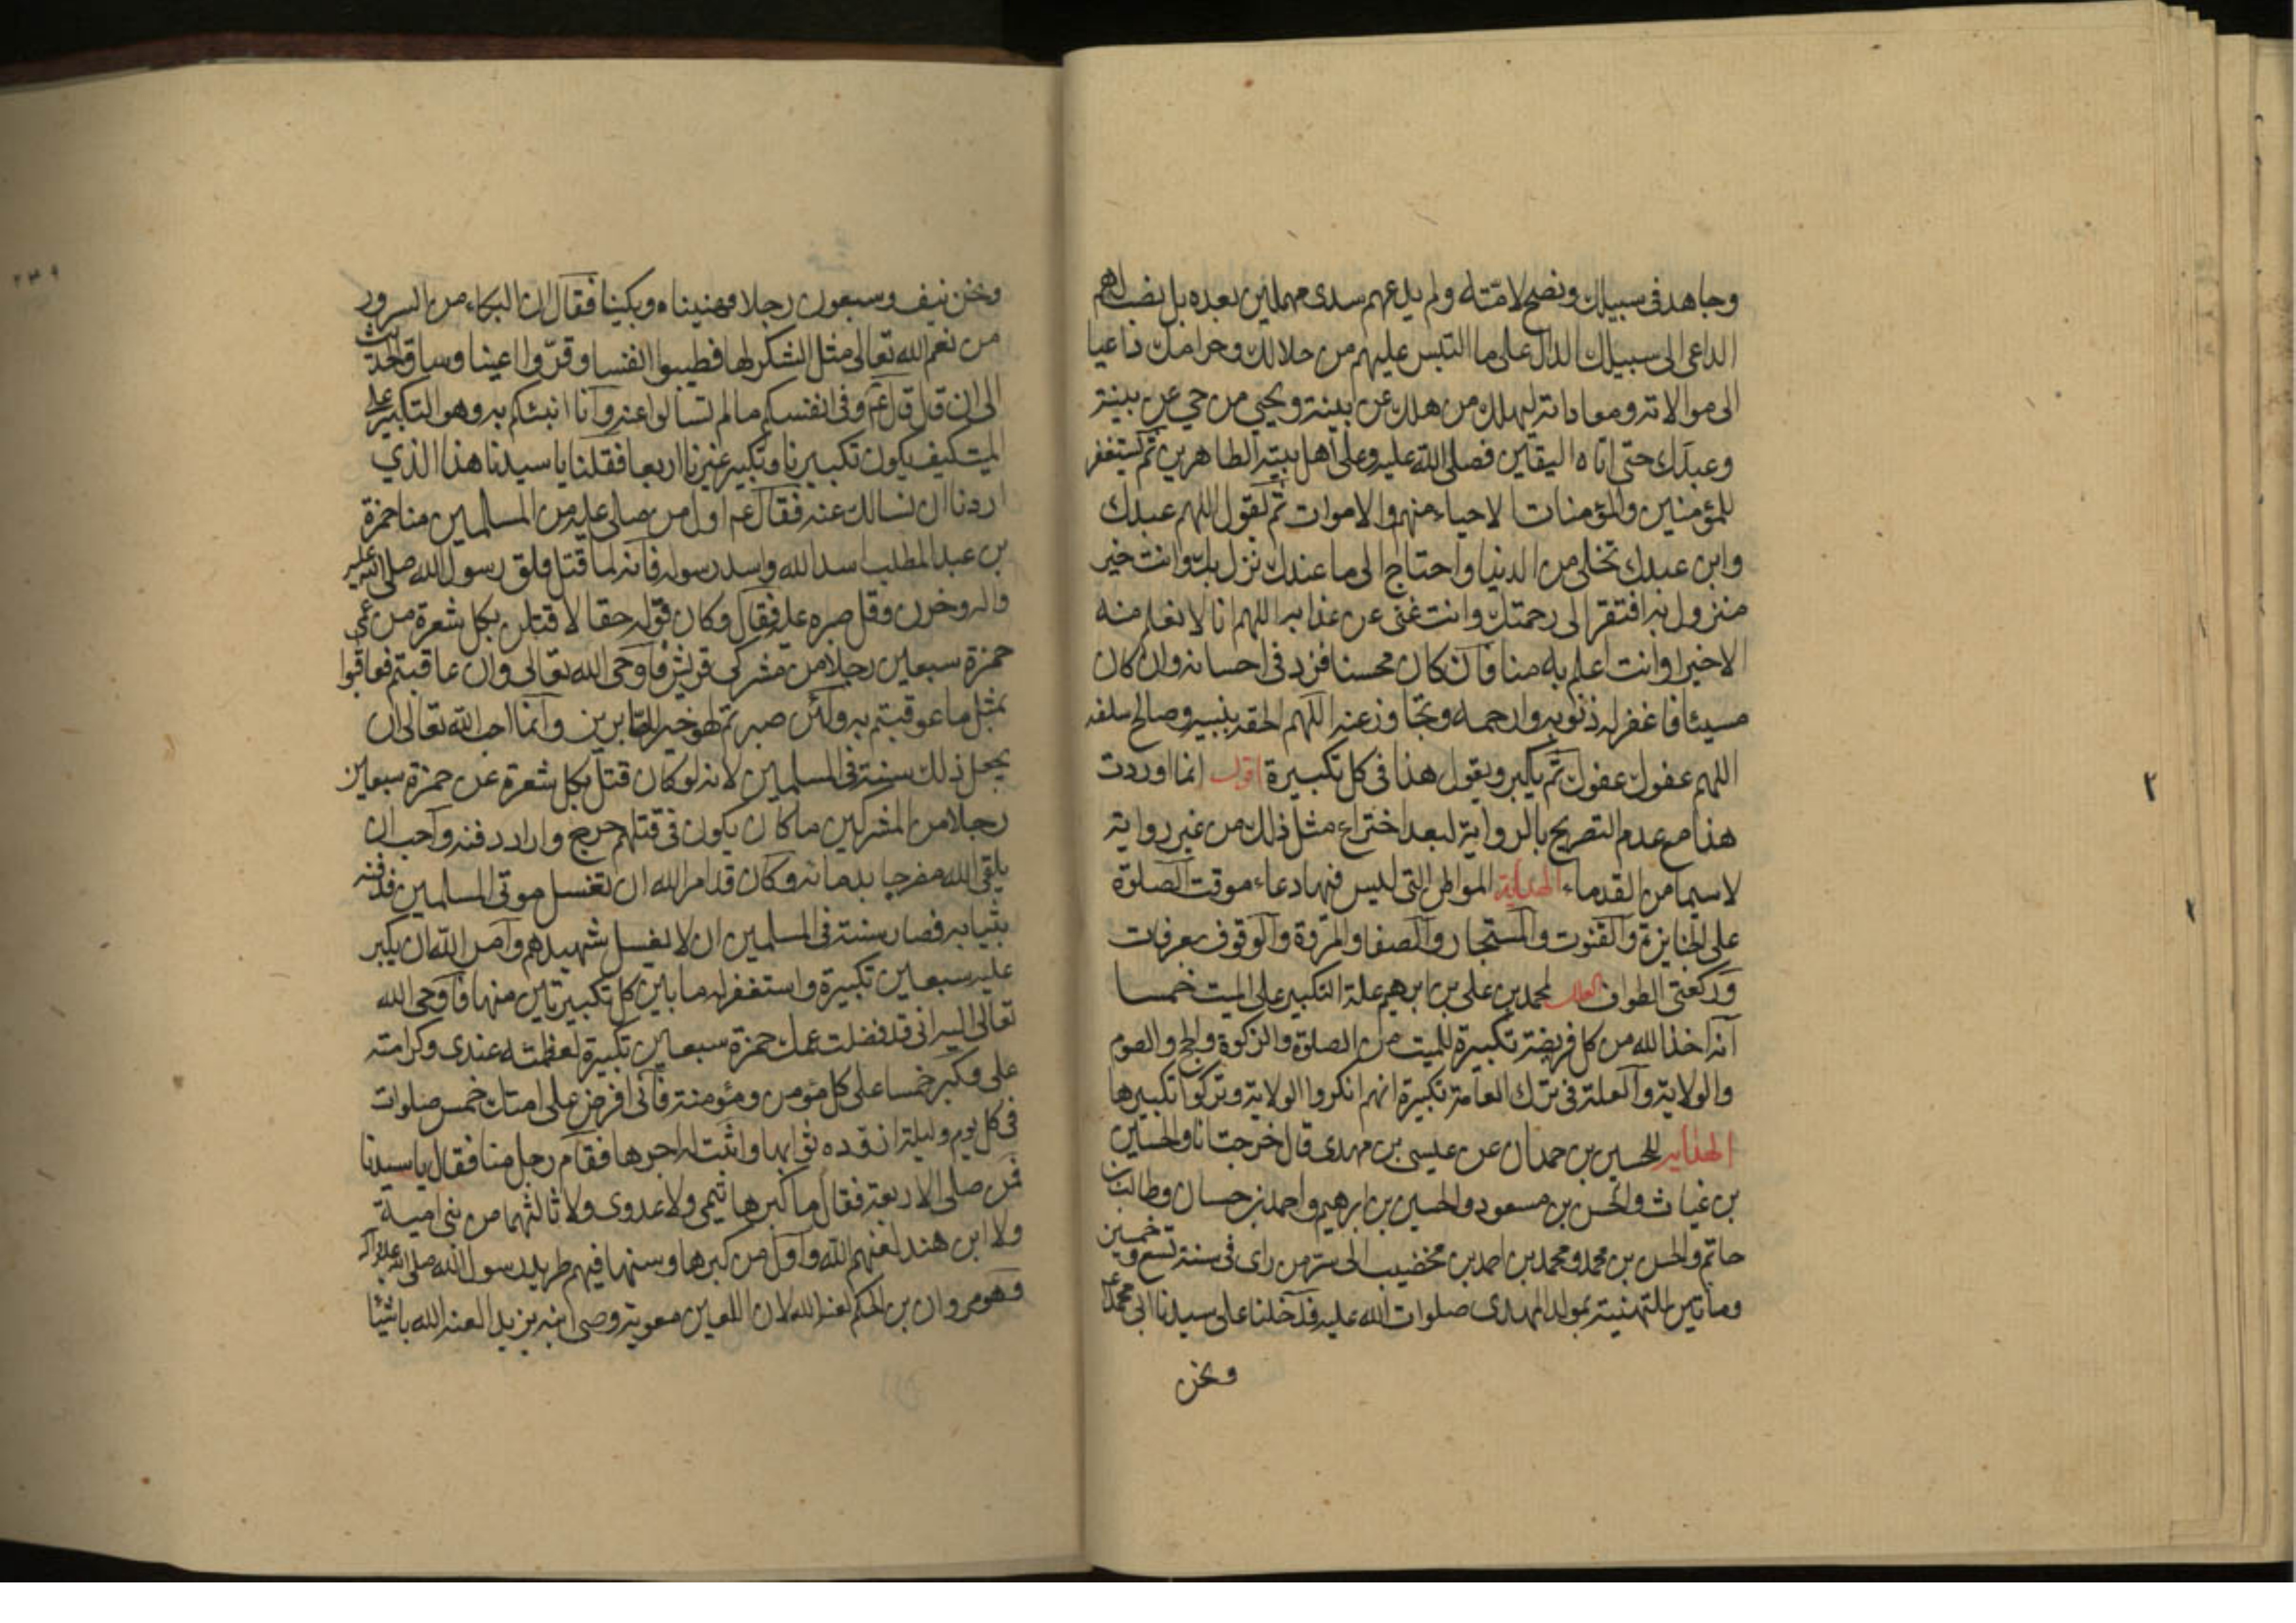 وجاهد في سبيلك ونصح لامته ولم يدعهم سدى مهملين بعده بل نصب لهم
الداعي الى سبيلك الدال على ما التبس عليهم من حلالك وحرامك داعيا
الى موالاته ومعاداته ليهلك من هلك عن بينة ويحيى من حي عن بينة
وعبدك حتى اتاه اليقين فصلى الله عليه وعلى اهل بيته الطاهرين ثم يستغفر
للمؤمنين والمؤمنات الاحياء منهم والاموات ثم تقول اللهم عبدك
وابن عبدك تخلى من الدنيا واحتاج الى ما عندك نزل بك وانت خير
منزول به افتقر الى رحمتك وانت غني عن عذابه اللهم انا لا نعلم منه
الا خيرا وانت اعلم به منا فان كان محسنا فزد في احسانه وان كان
مسيئا فاغفر له ذنوبه وارحمه وتجاوز عنه اللهم الحقه بنبيه وصالح سلفه
اللهم عفوك عفوك ثم يكبر ويقول هذا في كل تكبيرة اقول انما اوردت
هذا مع عدم التصريح بالرواية لبعد اختراع مثل ذلك من غير رواية
لاسيما من القدماء الهداية المواطن التي ليس فيها دعاء موقت الصلوة
على الجنازة والقنوت والمستجار والصفا والمروة والوقوف بعرفات
وركعتي الطواف العلل لمحمد بن علي بن ابرهيم علة التكبير على الميت خمسا
انه اخذ الله من كل فريضة تكبيرة للميت من الصلوة والزكوة والحج والصوم
والولاية والعلة في ترك العامة تكبيرة انهم انكروا الولاية وتركوا تكبيرها
الهداية للحسين بن حمدان عن عيسى بن مهدي قال خرجت انا والحسين
بن غياث والحسن بن مسعود والحسين بن ابرهيم واحمد بن حسان وطالب بن
حاتم والحسن بن محمد ومحمد بن احمد بن مخضيب الى سر من راى في سنة تسع وخمسين
ومأتين للتهنية بمولد المهدي صلوات الله عليه فدخلنا على سيدنا ابي محمد ع
ونحن
ونحن نيف وسبعون رجلا فهنيناه وبكينا فقال ان البكاء من السرور
من نعم الله تعالى مثل الشكر لها فطيبوا انفسا وقروا اعينا وساق الحديث
الى ان قال قال ع وفي انفسكم ما لم تسألوا عنه وانا انبئكم به وهو التكبير على
الميت كيف يكون تكبيرنا وتكبير غيرنا اربعا فقلنا يا سيدنا هذا الذي
اردنا ان نسالك عنه فقال ع اول من صلي عليه من المسلمين منا حمزة
بن عبد المطلب اسد الله واسد رسوله فانه لما قتل قلق رسول الله صلى الله عليه
واله وحزن وقل صبره عليه فقال وكان قوله حقا لاقتلن بكل شعرة من عمي
حمزة سبعين رجلا من مشركي قريش فاوحى الله تعالى وان عاقبتم فعاقبوا
بمثل ما عوقبتم به ولئن صبرتم لهو خير للصابرين وانما احب الله تعالى ان
يجعل ذلك سنة في المسلمين لانه لو كان قتل بكل شعرة عن حمزة سبعين
رجلا من المشركين ما كان يكون في قتلهم حرج واراد دفنه واحب ان
يلقى الله مضرجا بدمائه وكان قد امر الله ان تغسل موتى المسلمين فدفنه
بثيابه فصار سنة في المسلمين ان لا يغسل شهيدهم وامر الله ان يكبر
عليه سبعين تكبيرة واستغفر له ما بين كل تكبيرتين منها فاوحى الله
تعالى اليه اني قد فضلت عمك حمزة سبعين تكبيرة لعظمته عندي وكرامته
علي وكبر خمسا على كل مؤمن ومؤمنة فاني افرض على امتك خمس صلوات
في كل يوم وليلة ازوده ثوابها واثبت له اجرها فقام رجل منا فقال يا سيدنا
فمن صلى الاربعة فقال ما كبرها تيمي ولا عدوي ولا ثالثهما من بني امية
ولا ابن هند لعنهم الله واول من كبرها وسنها فيهم طريد رسول الله صلى الله عليه واله
وهو مروان بن الحكم لعنه الله لان اللعين معوية وصى ابنه يزيد لعنه الله باشياء
٢٣٩